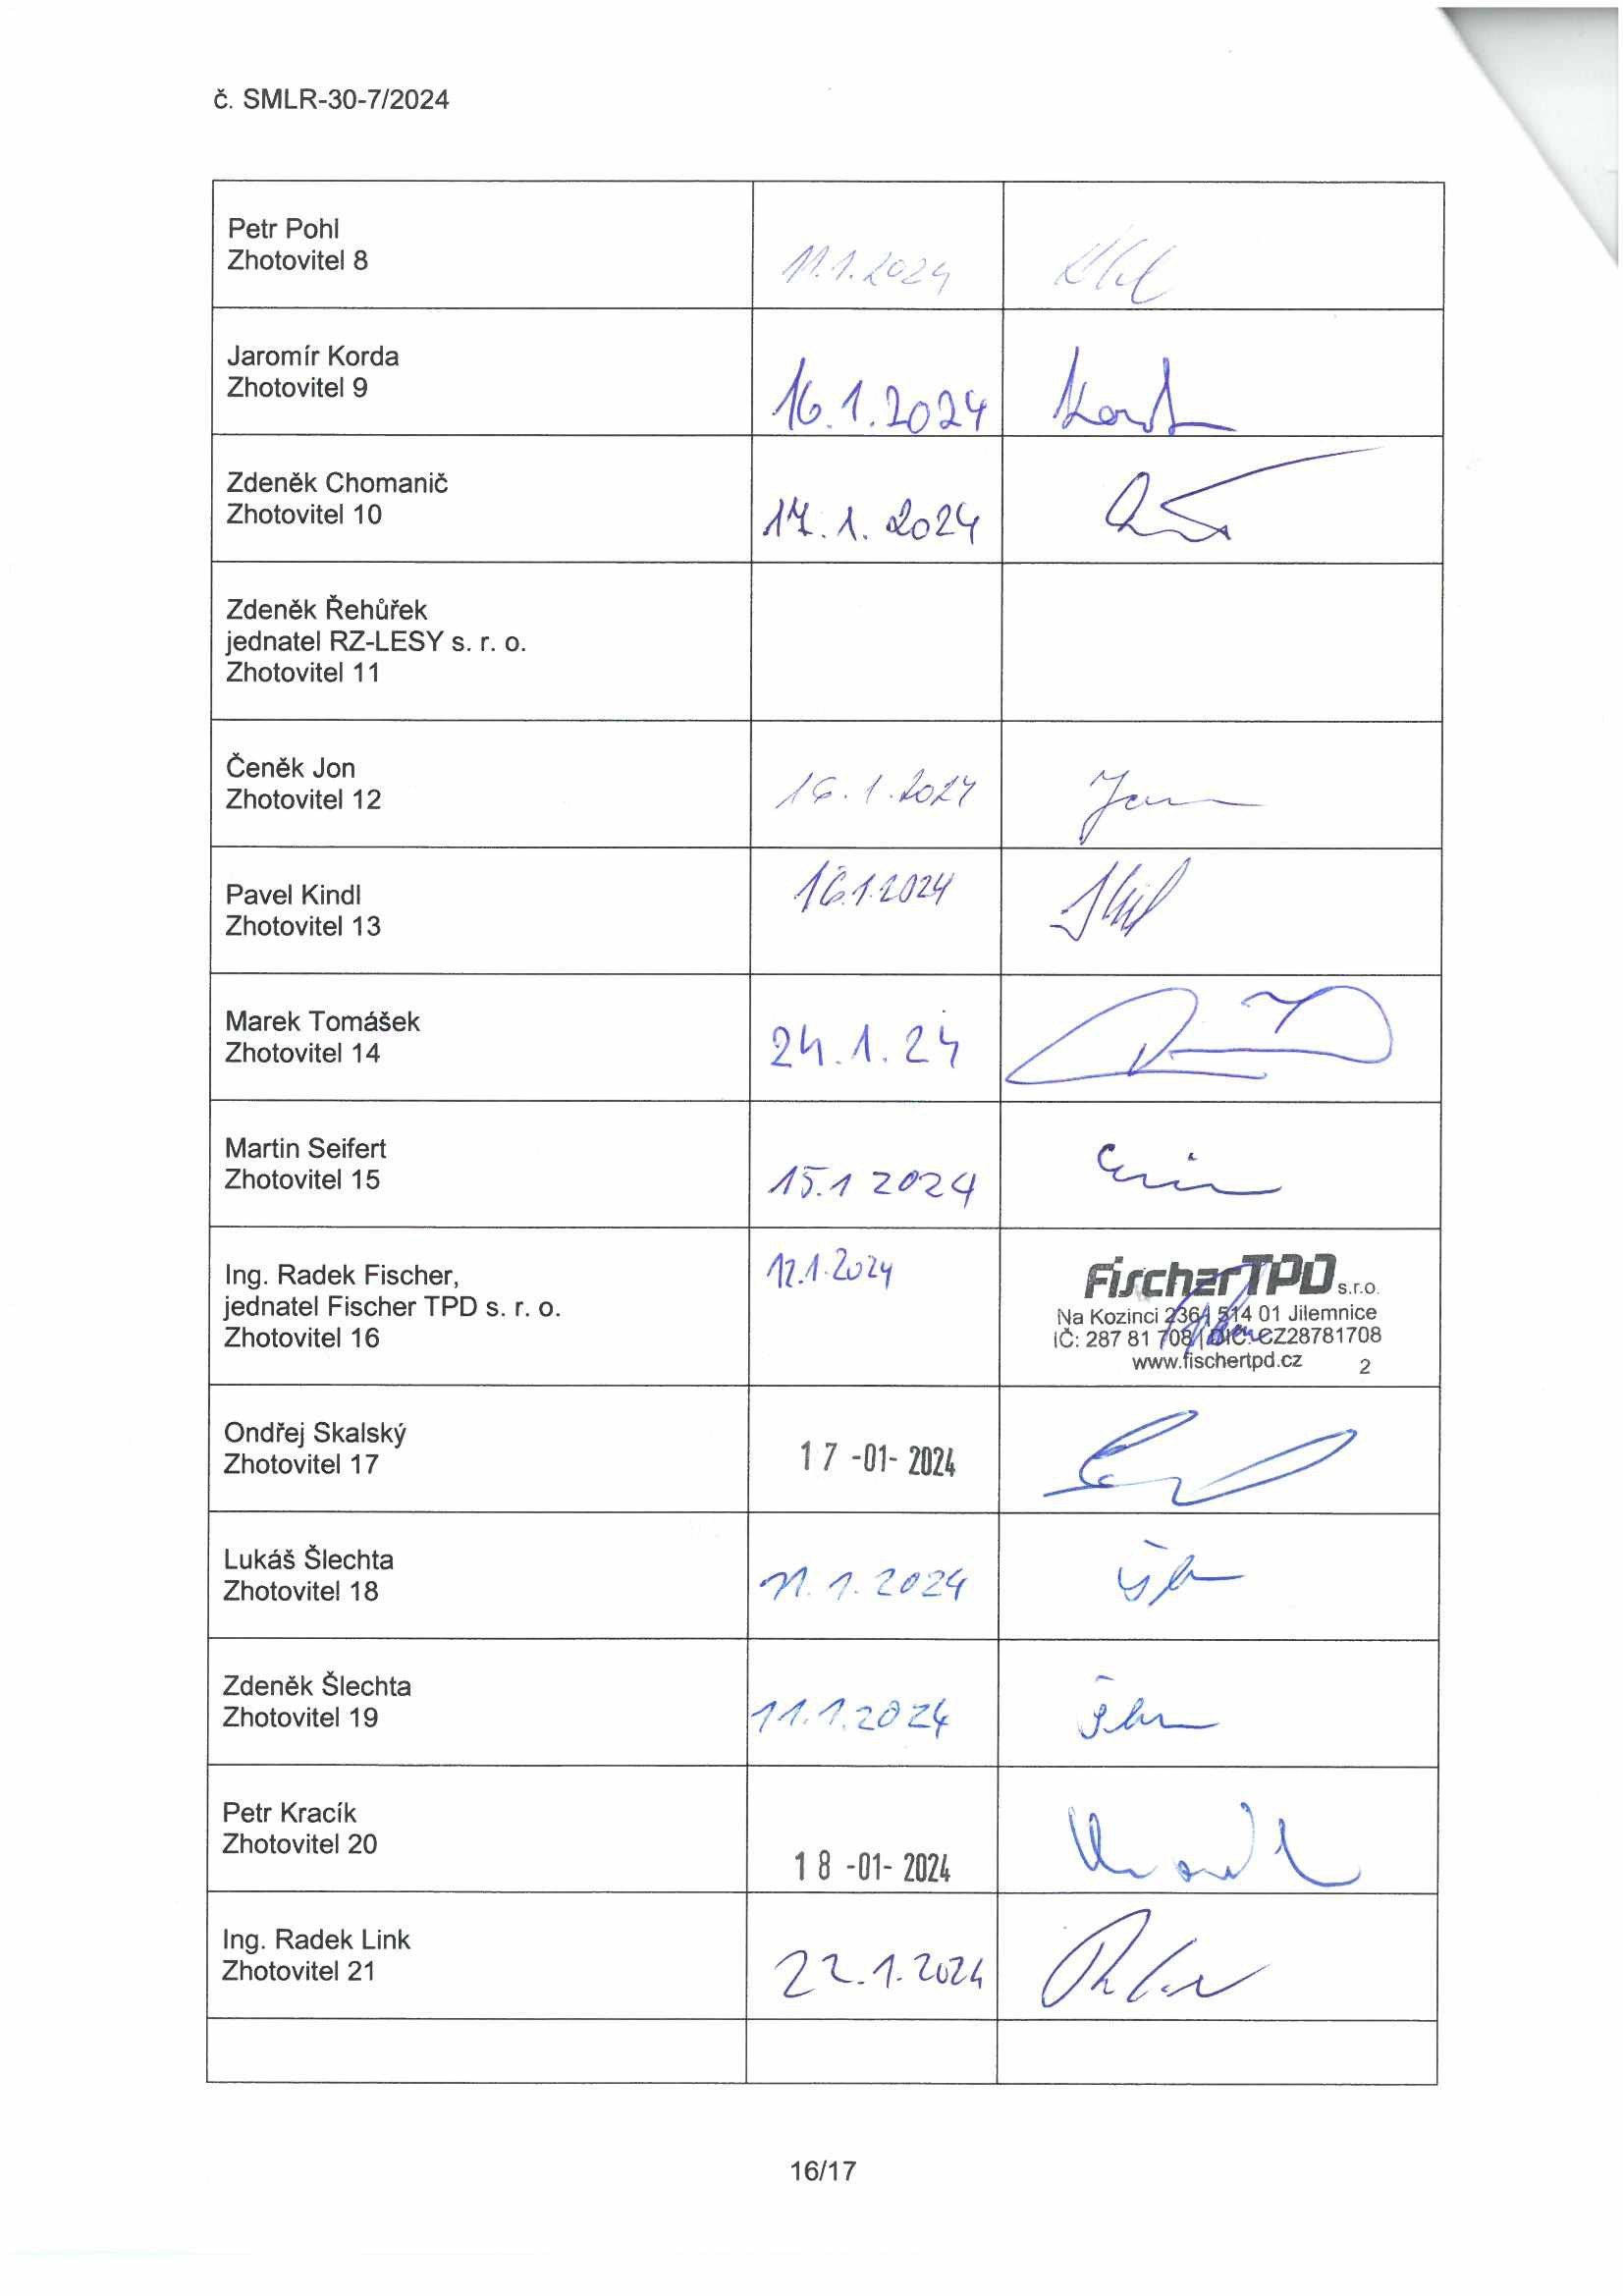 č. SMLR-30-7/2024
Petr Pohl
Zhotovitel 8
11.1.2024
Jaromír Korda
Zhotovitel 9
16.1.2024
Zdeněk Chomanič
Zhotovitel 10
17.1.2024
Zdeněk Řehůřek
jednatel RZ-LESY s. r. o.
Zhotovitel 11
Čeněk Jon
Zhotovitel 12
16.1.2024
Jon
Pavel Kindl
Zhotovitel 13
16.1.2024
Marek Tomášek
Zhotovitel 14
24.1.24
Martin Seifert
Zhotovitel 15
15.1 2024
Ing. Radek Fischer,
jednatel Fischer TPD s. r. o.
Zhotovitel 16
12.1.2024
FischerTPD s.r.o.
Na Kozinci 236, 514 01 Jilemnice
IČ: 287 81 708 | DIČ: CZ28781708
www.fischertpd.cz 2
Ondřej Skalský
Zhotovitel 17
17 -01- 2024
Lukáš Šlechta
Zhotovitel 18
11.1.2024
Zdeněk Šlechta
Zhotovitel 19
11.1.2024
Petr Kracík
Zhotovitel 20
18 -01- 2024
Ing. Radek Link
Zhotovitel 21
22.1.2024
16/17